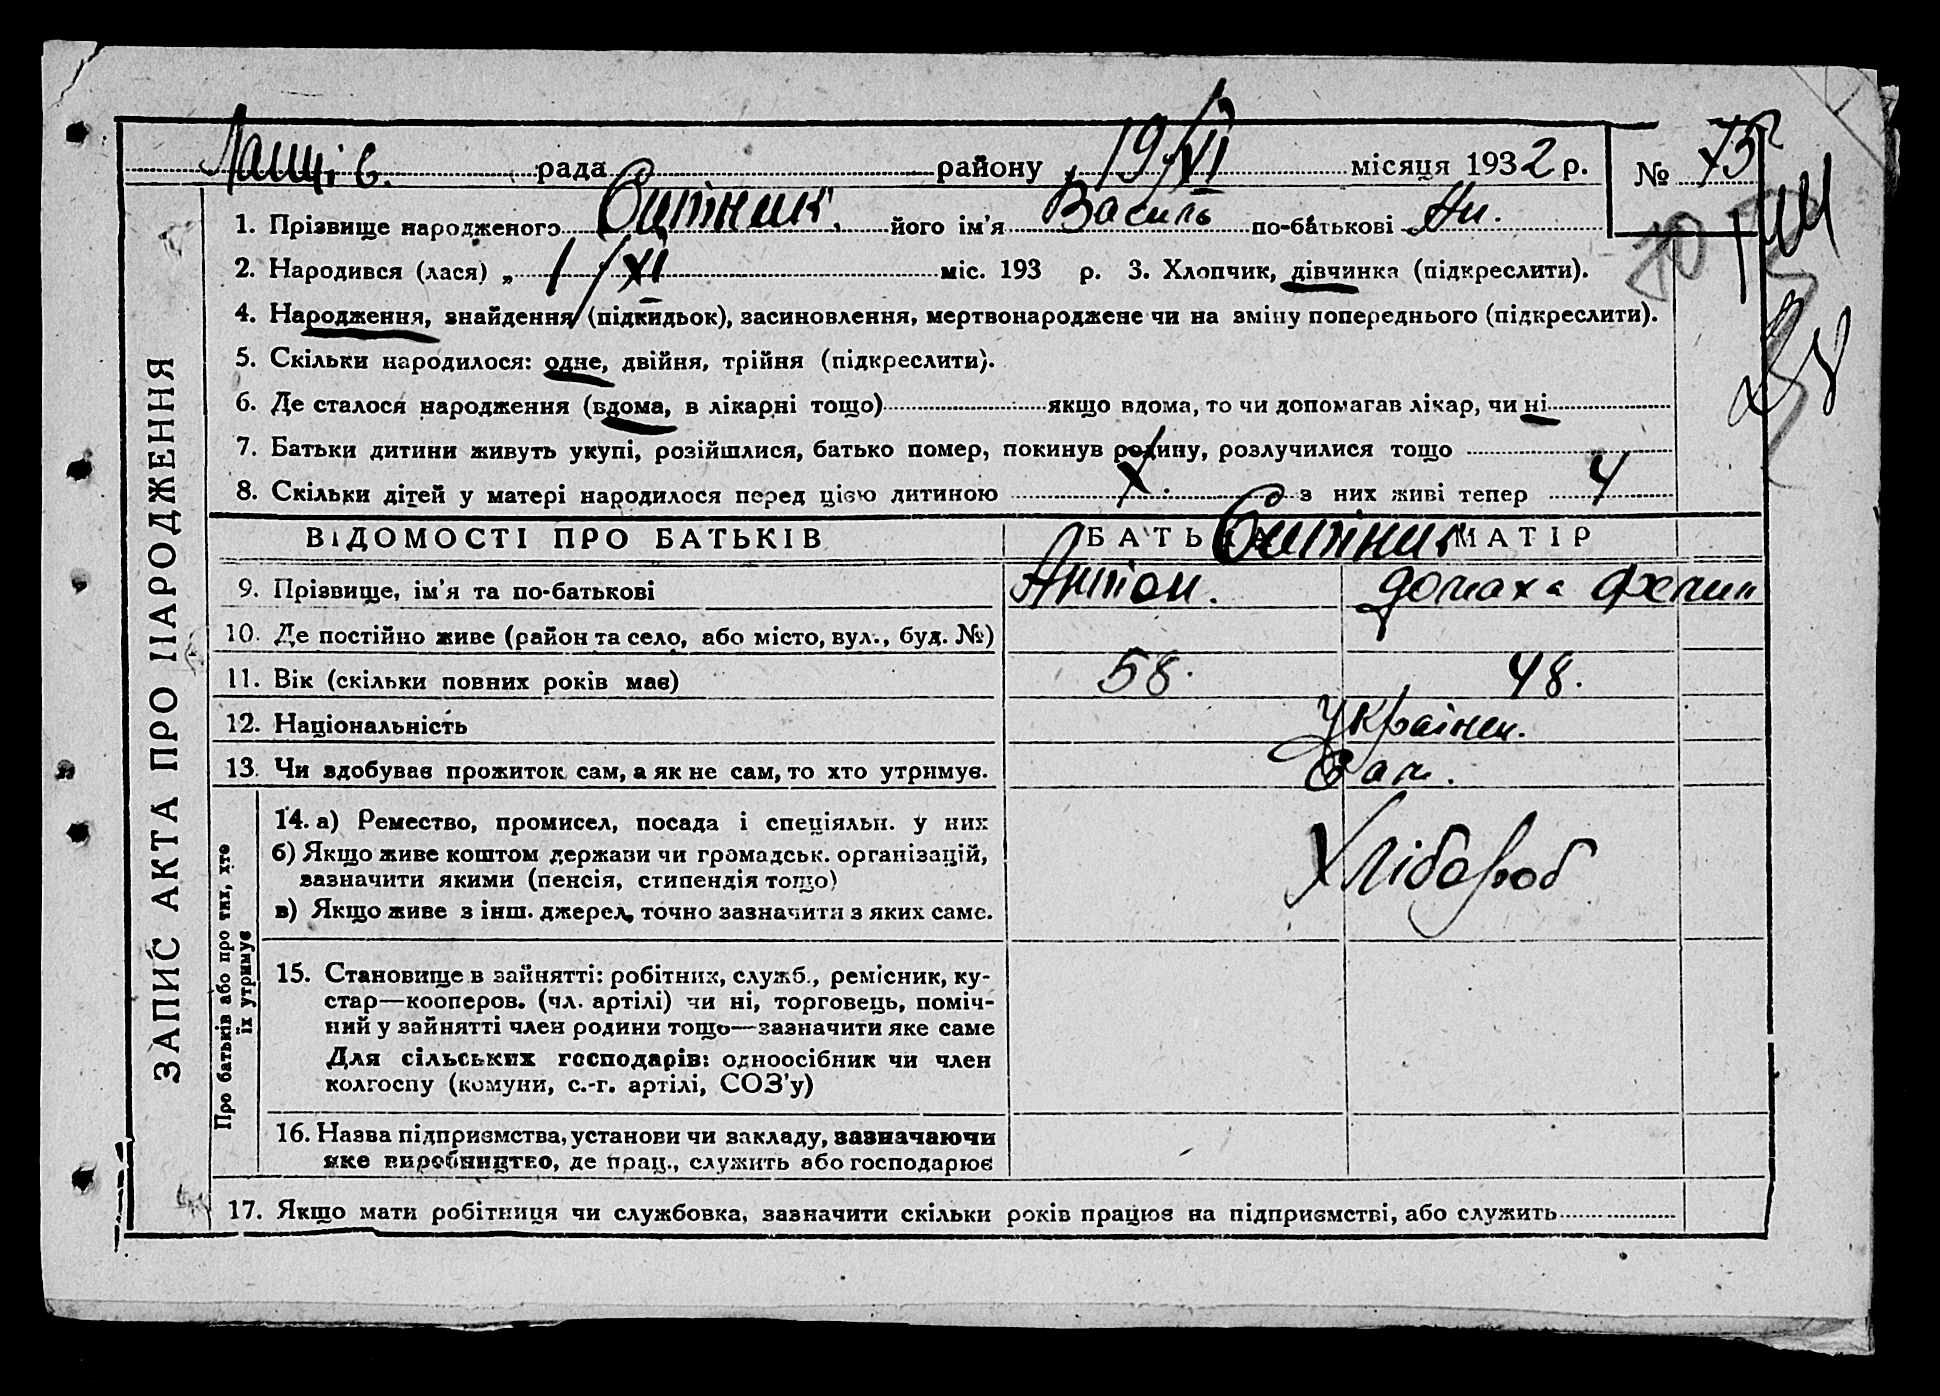 Лащів. рада района 19/XI місяця 1932 р. № 75
1. Прізвище народженого Ситник, його ім'я Василь по-батькові Ан.
2. Народився (лася) „ 1/XI міс. 193 р. 3. Хлопчик, дівчинка (підкреслити).
4. Народження, знайдення (підкидьок), засиновлення, мертвонароджене чи на зміну попереднього (підкреслити).
5. Скільки народилося: одне, двійня, трійня (підкреслити).
6. Де сталося народження (вдома, в лікарні тощо) якщо вдома, то чи допомагав лікар, чи ні
7. Батьки дитини живуть укупі, розійшлися, батько помер, покинув родину, розлучилися тощо
8. Скільки дітей у матері народилося перед цією дитиною X. з них живі тепер 4
ВІДОМОСТІ ПРО БАТЬКІВ БАТЬКА Ситник МАТІР
9. Прізвище, ім'я та по-батькові Антон. Домаха
10. Де постійно живе (район та село, або місто, вул., буд. №)
11. Вік (скільки повних років має) 58. 48.
12. Національність Українец.
13. Чи здобуває прожиток сам, а як не сам, то хто утримує. Сам.
14. а) Ремество, промисел, посада і спеціяльн. у них Хлібороб
б) Якщо живе коштом держави чи громадськ. організацій,
зазначити якими (пенсія, стипендія тощо)
в) Якщо живе з інш. джерел, точно зазначити з яких саме.
15. Становище в зайнятті: робітник, служб., ремісник, ку-
стар—кооперов. (чл. артілі) чи ні, торговець, поміч-
ний у зайнятті член родини тощо—зазначити яке саме
Для сільських господарів: одноосібник чи член
колгоспу (комуни, с.-г. артілі, СОЗ'у)
16. Назва підприємства, установи чи закладу, зазначаючи
яке виробництво, де прац., служить або господарює
17. Якщо мати робітниця чи службовка, зазначити скільки років працює на підприємстві, або служить
ЗАПИС АКТА ПРО НАРОДЖЕННЯ
Про батьків або про тих, хто
їх утримує